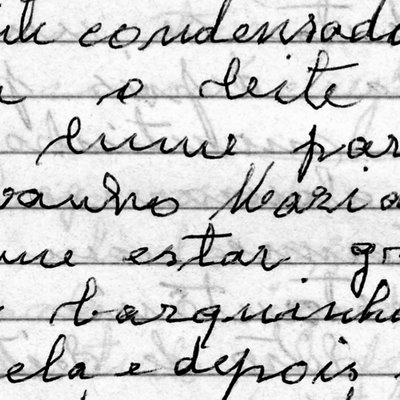 condensado
o leite
lume par
banho Maria
estar
barquinha
ela e depois